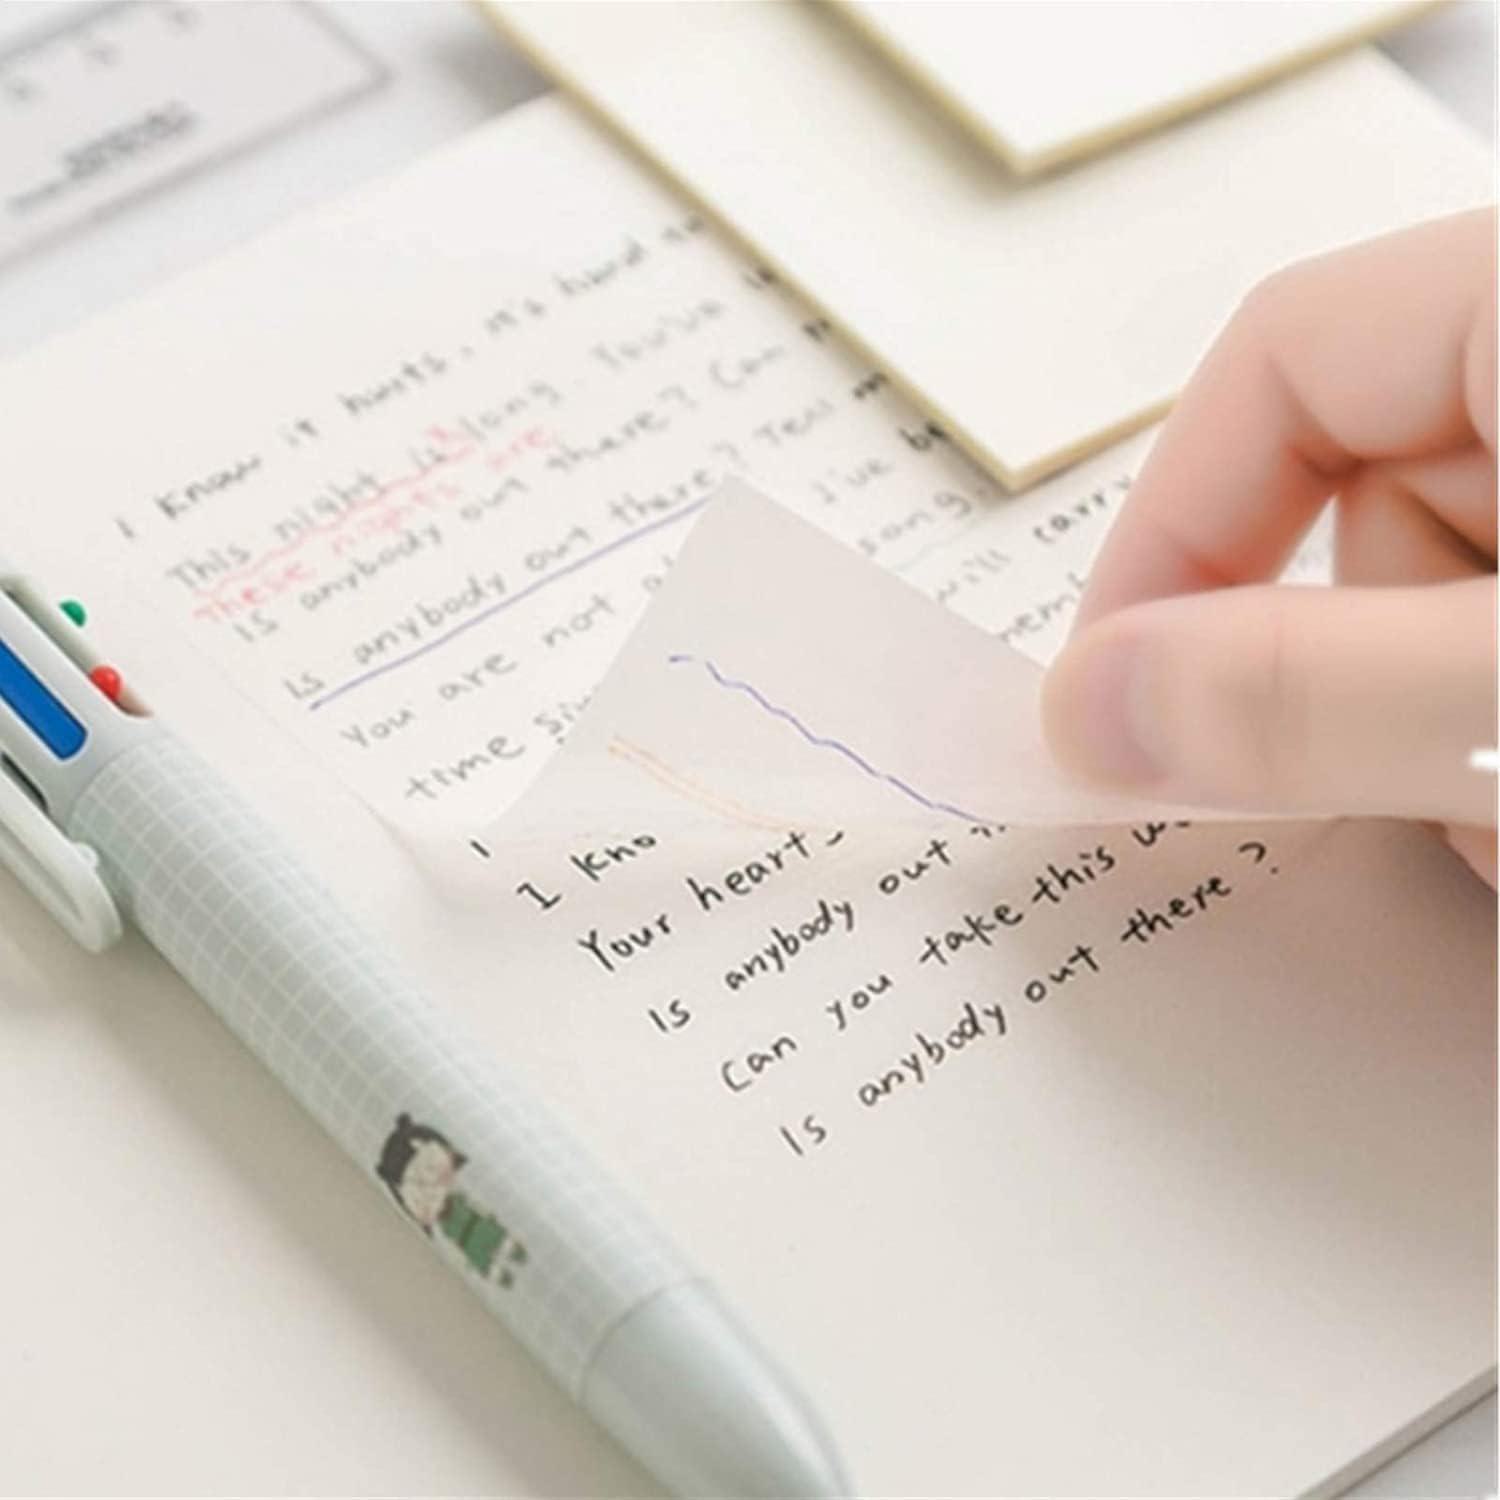 I know it hurts, it's hard to
This night is long. You've
these nights are
Is anybody out there? Can
Is anybody out there? Tell
You are not I've be
time song.
will carry
I
I kno
Your heart
Is anybody out
Can you take this
Is anybody out there?